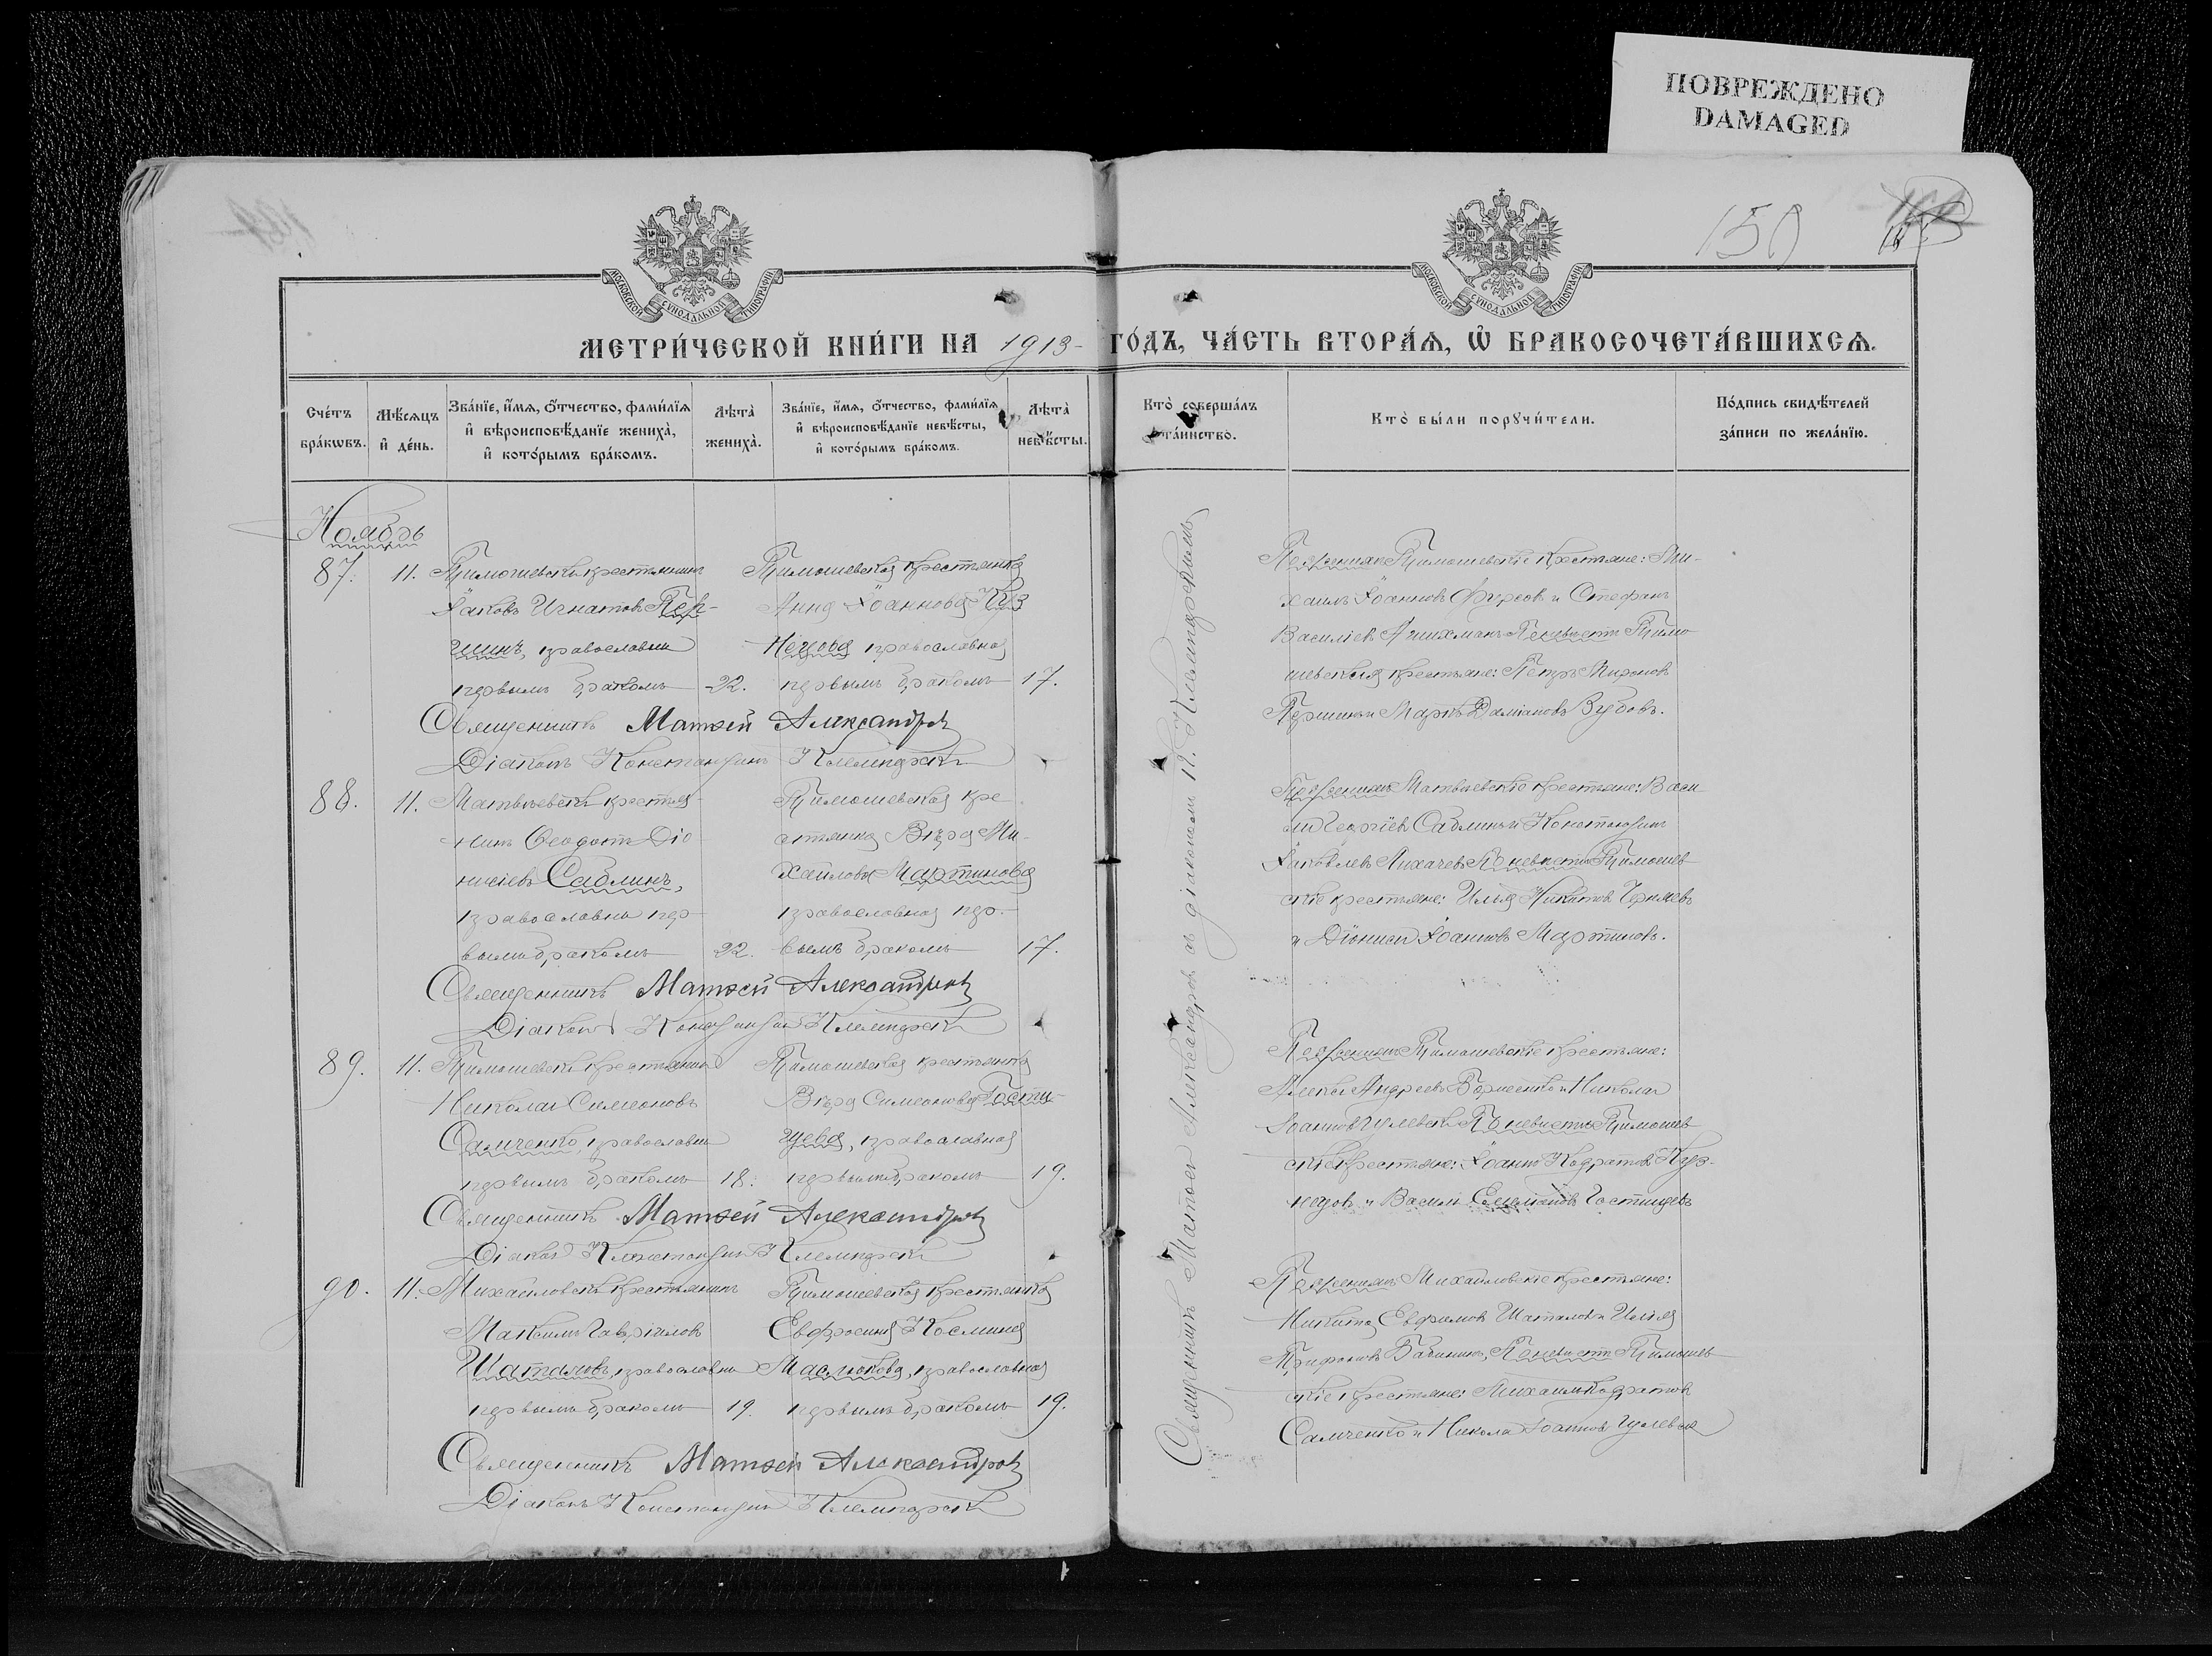 ПОВРЕЖДЕНО
DAMAGED
150
МОСКОВСКОЙ СѴНОДАЛЬНОЙ ТИПОГРАФІИ
МОСКОВСКОЙ СѴНОДАЛЬНОЙ ТИПОГРАФІИ
МЕТРИ́ЧЕСКОЙ КНИ́ГИ НА 1913 ГО́ДЪ, ЧА́СТЬ ВТОРА́Ѧ, Ѡ҆ БРАКОСОЧЕТА́ВШИХСѦ.
Сче́тъ бра́кѡвъ.
Мѣ́сѧцъ и҆ де́нь.
Зва́нїе, и҆́мѧ, ѻ҆́тчество, фами́лїѧ
и҆ вѣроисповѣ́данїе жениха̀,
и҆ кото́рымъ бра́комъ.
Лѣта̀ жениха̀.
Зва́нїе, и҆́мѧ, ѻ҆́тчество, фами́лїѧ
и҆ вѣроисповѣ́данїе невѣ́сты,
и҆ кото́рымъ бра́комъ.
Лѣта̀ невѣ́сты.
Кто̀ соверша́лъ та́инство.
Кто̀ бы́ли порꙋчи́тели.
По́дпись свидѣ́телей
за́писи по жела́нїю.
Ноябрь
87. 11. Тимошевскій крестьянинъ
Іаковъ Игнатовъ Пер-
шинъ, православный
первымъ бракомъ 22.
Тимошевская крестьянка
Анна Іоаннова Куз
нецова православная
первымъ бракомъ 17.
По женихѣ Тимошевскіе крестьяне: Ми-
хаилъ Іоанновъ Фурсов и Стефанъ
Василіевъ По невѣстѣ Тимо
шевскія крестьяне: Петръ Мироновъ
Першинъ и Маркъ Даміановъ Зубовъ.
Священникъ Матѳей Александровъ
Діаконъ Константинъ
88. 11. Матвѣевскій крестья-
нинъ Ѳеодотъ Діо
нисіевъ Саблинъ,
православный пер-
вымъ бракомъ 22.
Тимошевская кре
стьянка Вѣра Ми-
хаилова Мартинова
православная пер-
вымъ бракомъ 17.
По женихѣ Матвѣевскіе крестьяне: Васи
лій Георгіевъ Саблинъ и Константинъ
Іаковлевъ Лихачевъ По невѣстѣ Тимошев
скіе крестьяне: Илья Никитовъ Черняевъ
и Діонисій Іоанновъ Мартиновъ.
Священникъ Матѳей Александровъ
Діаконъ Константинъ
89. 11. Тимошевскій крестьянинъ
Николай Симеоновъ
Самченко, православный
первымъ бракомъ 18.
Тимошевская крестьянка
Вѣра Симеонова Гости-
щева, православная
первымъ бракомъ 19.
По женихѣ Тимошевскіе крестьяне:
Алексѣй Андреевъ и Николай
Іоанновъ По невѣстѣ Тимошев
скіе крестьяне: Іоаннъ Кодратовъ Куз-
нецовъ и Василій Симеоновъ Гостищевъ
Священникъ Матѳей Александровъ
Діаконъ Константинъ
90. 11. Михайловскій крестьянинъ
Максимъ Гавріиловъ
Шаталовъ, православный
первымъ бракомъ 19.
Тимошевская крестьянка
Евфросинія Космина
Маслюкова, православная
первымъ бракомъ 19.
По женихѣ Михайловскіе крестьяне:
Никита Евфимовъ Шаталовъ и Илья
Трифоновъ Бабинин, По невѣстѣ Тимошев
скіе крестьяне: Михаилъ Кодратовъ
Самченко и Николай Іоанновъ
Священникъ Матѳей Александровъ
Діаконъ Константинъ
Священникъ Матѳей Александровъ съ діакономъ К.